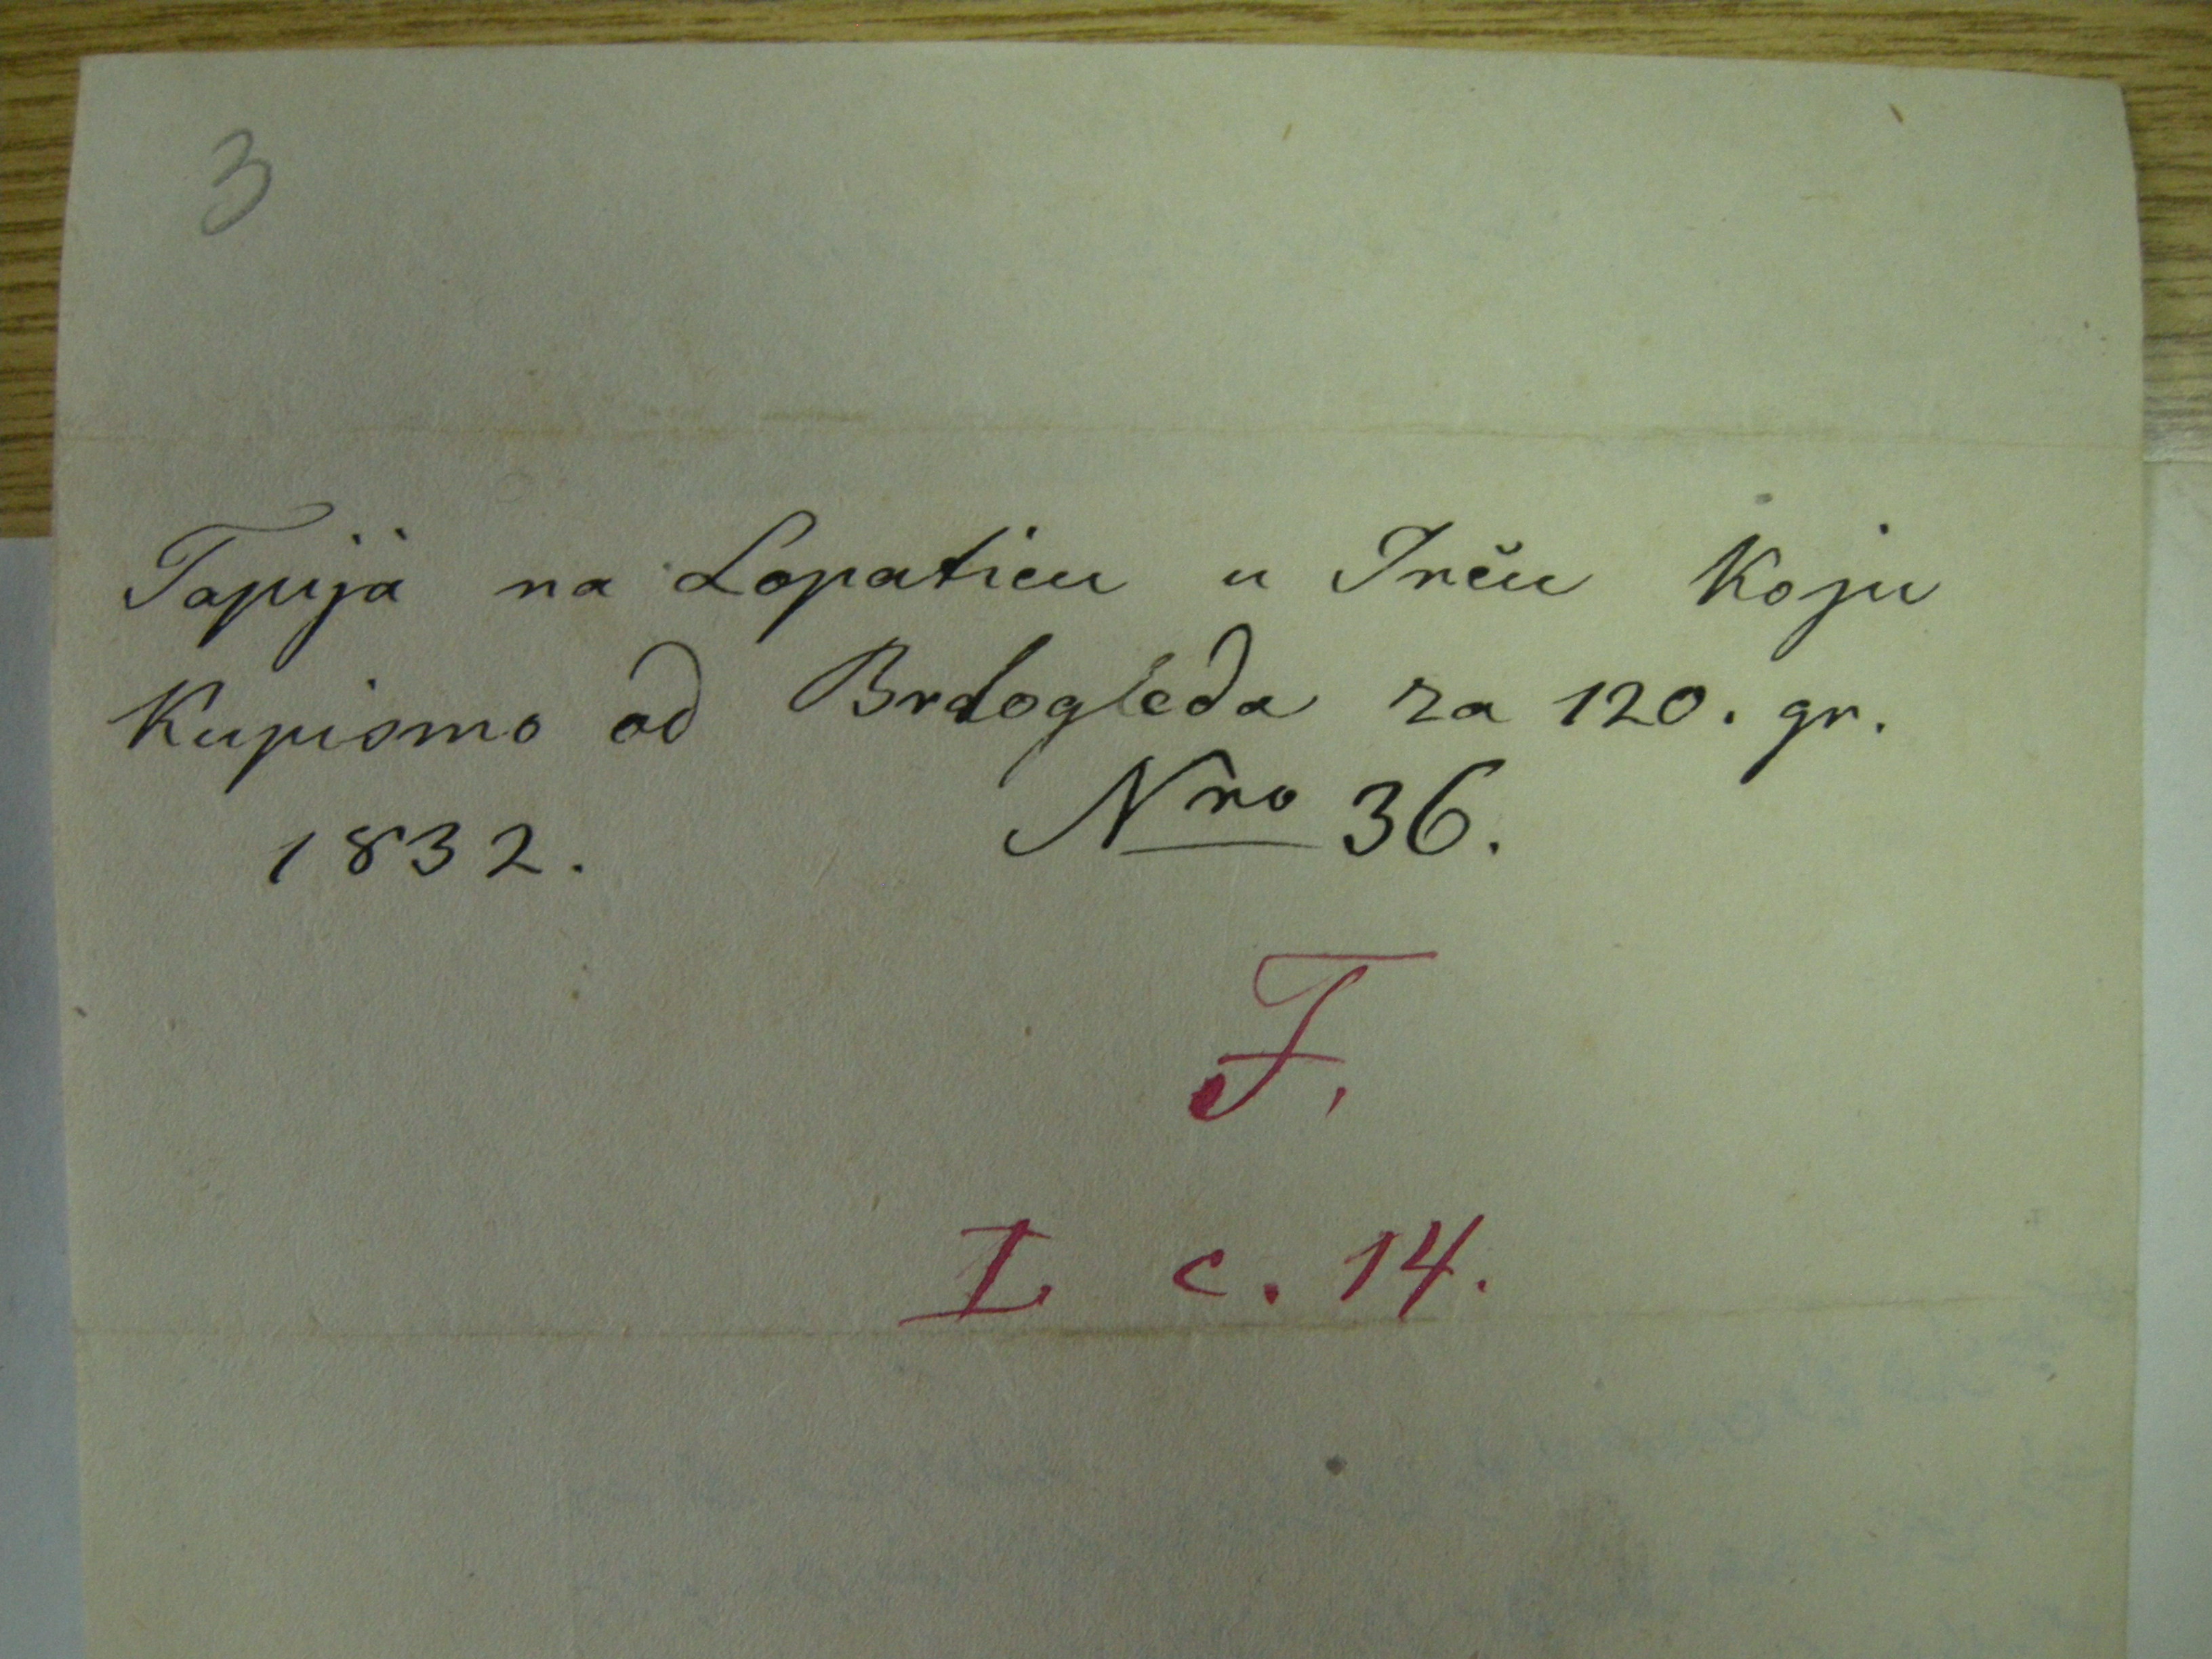 3
Tapija na Lopaticu u Trču Koju
Kupismo od Brdogleda za 120. gr.
1832. Nro 36.
F.
I c. 14.